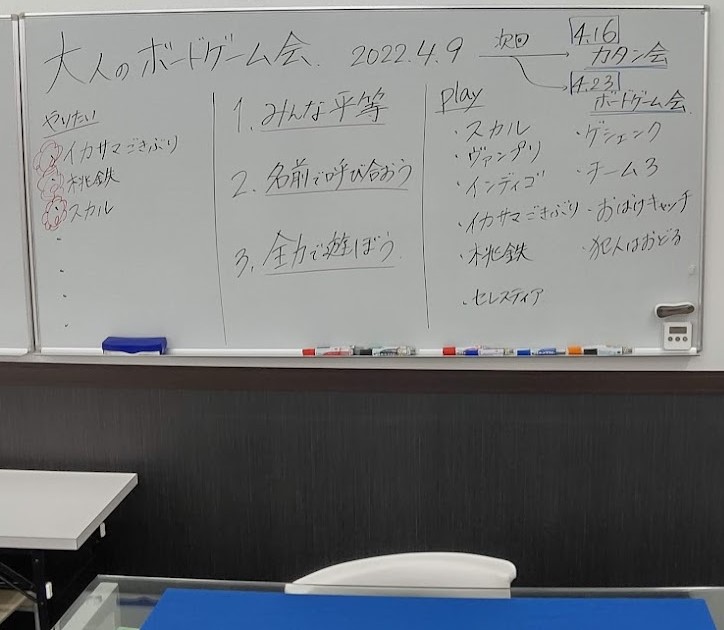 大人のボードゲーム会. 2022.4.9 次回 4.16
カタン会
4.23
ボードゲーム会.
やりたい
イカサマごきぶり
桃鉄
スカル
1. みんな平等
2. 名前で呼び合おう
3. 全力で遊ぼう.
play
・スカル
・ヴァンプリ
・インディゴ
・イカサマごきぶり
・桃鉄
・セレスティア
・ゲシェンク
・チーム3
・おばけキャッチ
・犯人はおどる